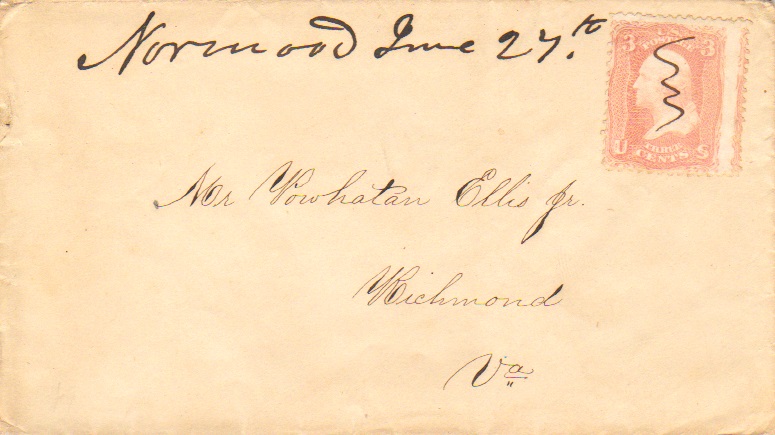 Norwood June 27.th
3 POSTAGE 3
U THREE CENTS S
Mr Powhatan Ellis Jr.
Richmond
Va